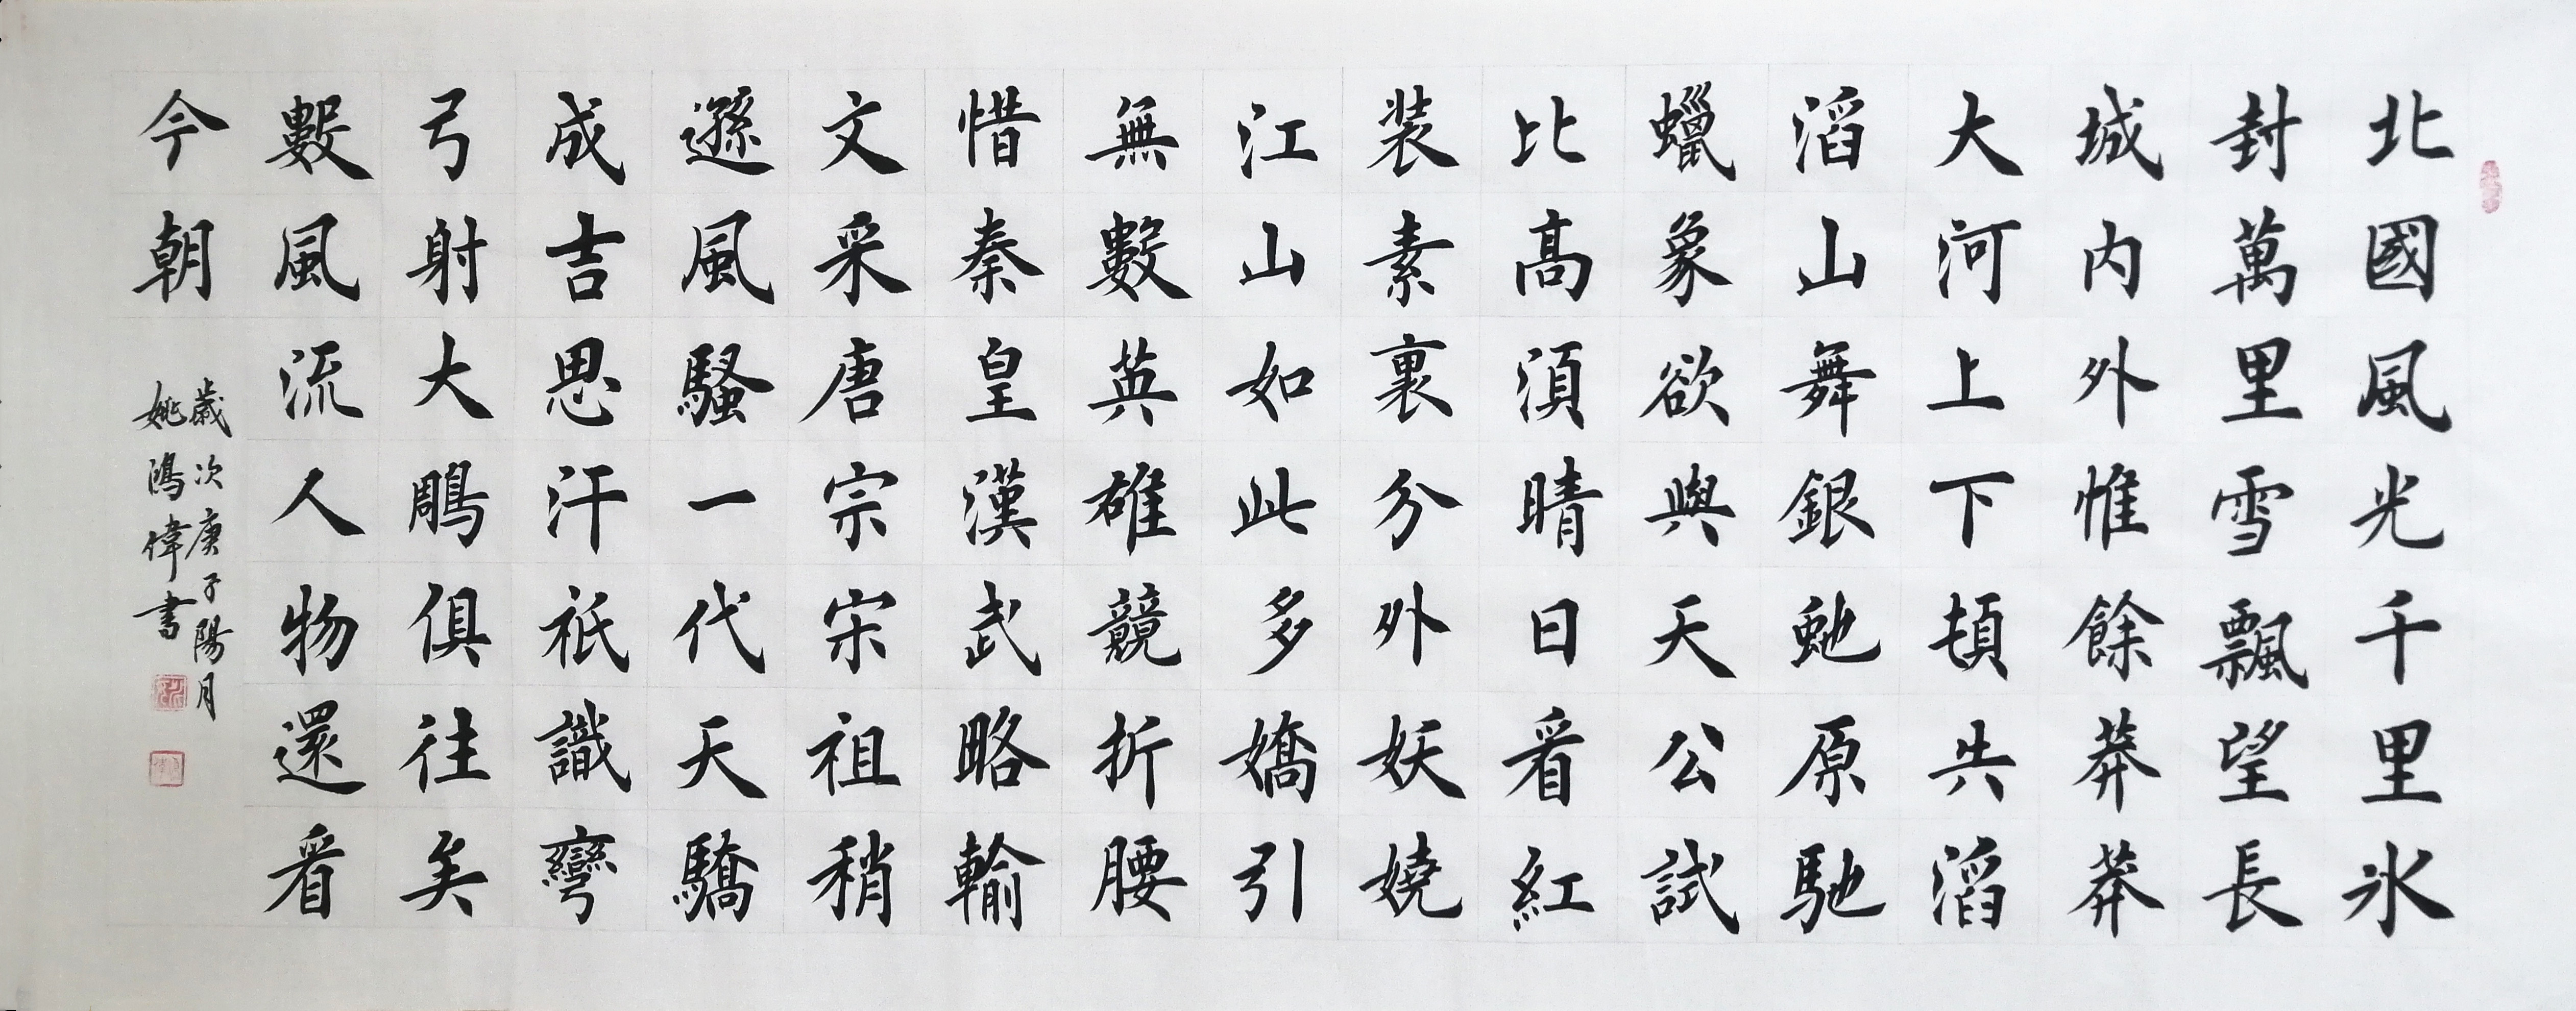 北國風光千里氷
封萬里雪飄望長
城内外惟餘莽莽
大河上下頓失滔
滔山舞銀虵原馳
蠟象欲與天公試
比高須晴日看紅
装素裹分外妖嬈
江山如此多嬌引
無數英雄競折腰
惜秦皇漢武略輸
文采唐宗宋祖稍
遜風騷一代天驕
成吉思汗祇識彎
弓射大鵰俱往矣
數風流人物還看
今朝
歲次庚子陽月
姚鴻偉書